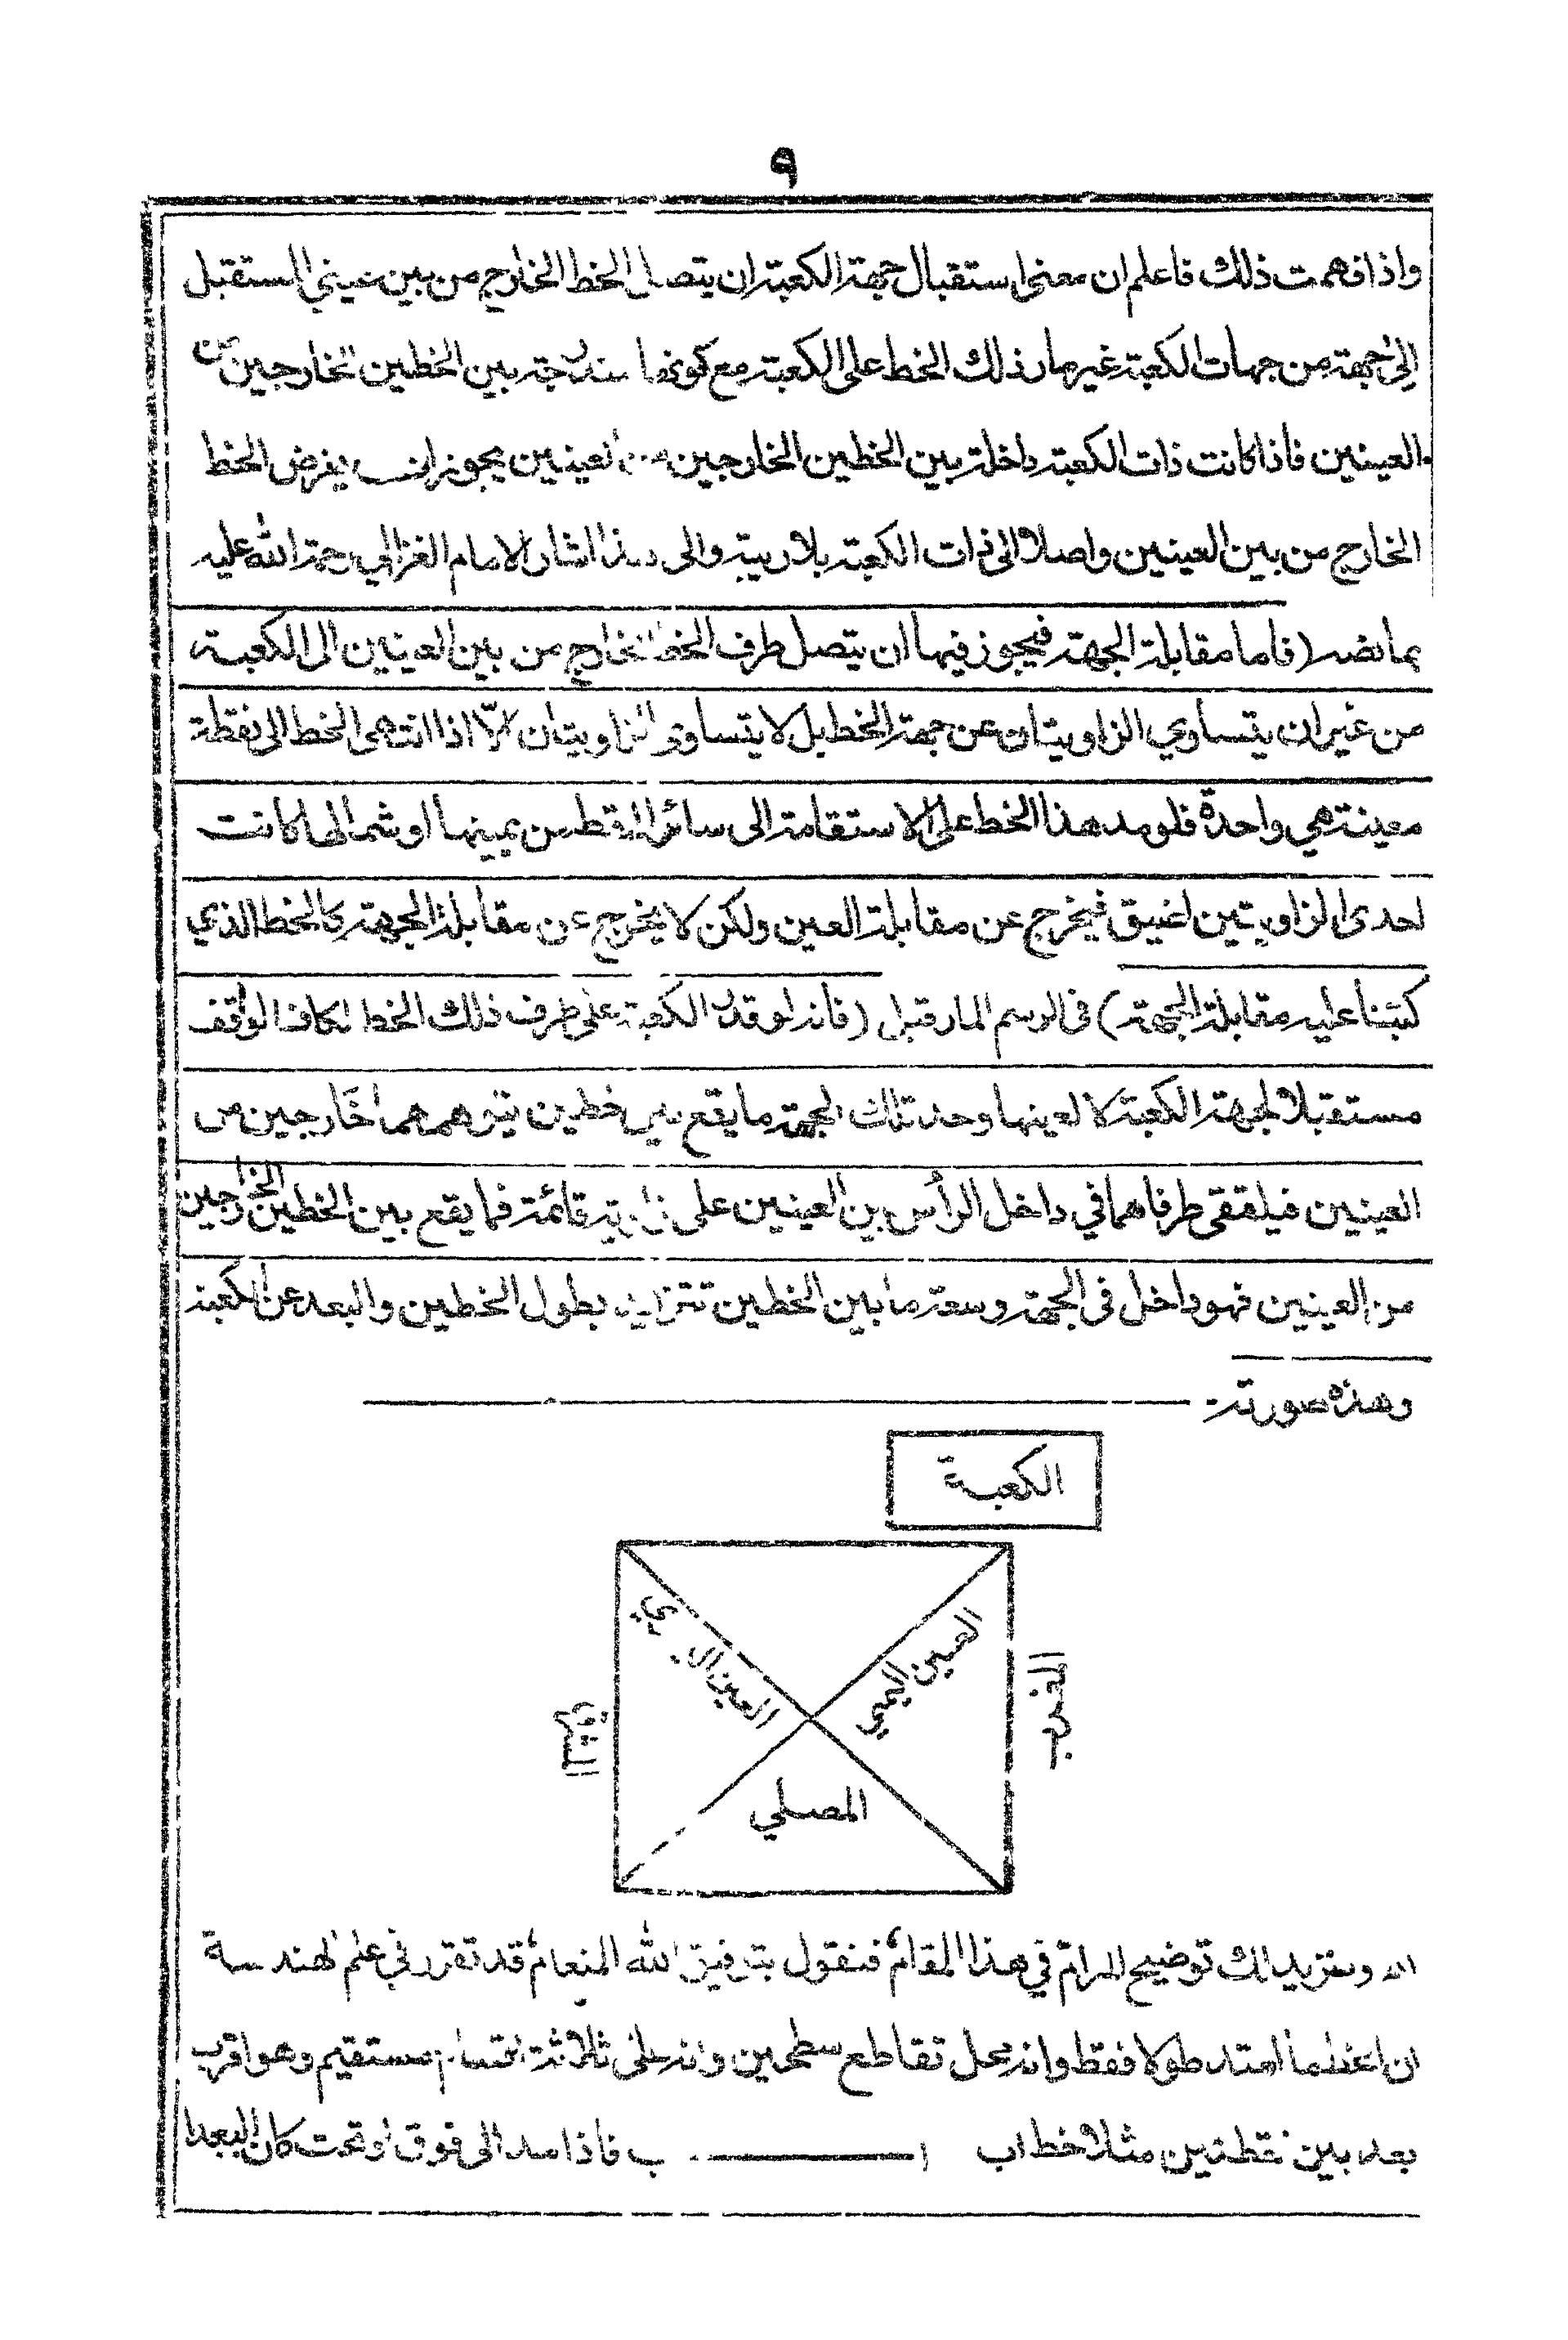 ٩
واذا فهمت ذلك فاعلم ان معنى استقبال جهة الكعبة ان يتصل الخط الخارج من بين عيني المستقبل
الى جهة من جهات الكعبة غير مار ذلك الخط على الكعبة مع كونها مندرجة بين الخطين الخارجين من
العينين فاذا كانت ذات الكعبة داخلة بين الخطين الخارجين من العينين يجوز ان يفرض الخط
الخارج من بين العينين واصلا الى ذات الكعبة بلا ريبة والى هذا اشار الامام الغزالي رحمة الله عليه
بما نصه (فاما مقابلة الجهة فيجوز فيها ان يتصل طرف الخط الخارج من بين العينين الى الكعبة
من غير ان يتساوي الزاويتان عن جهة الخط بل لا يتساوى الزاويتان الّا اذا انتهى الخط الى نقطة
معينة هي واحدة فلو مد هذا الخط على الاستقامة الى سائر النقط من يمينها او شمالها كانت
احدى الزاويتين اضيق فيخرج عن مقابلة العين ولكن لا يخرج عن مقابلة الجهة كالخط الذي
كتبنا عليه مقابلة الجهة) في الرسم المار قبل (فانه لو قدر الكعبة على طرف ذلك الخط لكان الواقف
مستقبلا لجهة الكعبة لا لعينها وحد تلك الجهة ما يقع بين خطين يتوهمهما خارجين من
العينين فيلتقى طرفاهما في داخل الرأس بين العينين على زاوية قائمة فما يقع بين الخطين الخارجين
من العينين فهو داخل في الجهة وسعة ما بين الخطين تتزايد بطول الخطين والبعد عن الكعبة
وهذه صورته
الكعبة
العين اليمني
العين اليسري
المغرب
الشرق
المصلي
ولنزيد لك توضيح المرام في هذا المقام فنقول بتوفيق الله المنعام قد تقرر في علم الهندسة
ان الخط ما امتد طولا فقط وانه محل تقاطع سطحين وانه على ثلاثة اقسام مستقيم وهو اقرب
بعد بين نقطتين مثلا خط اب ا ب فاذا مد الى فوق او تحت كان البعد